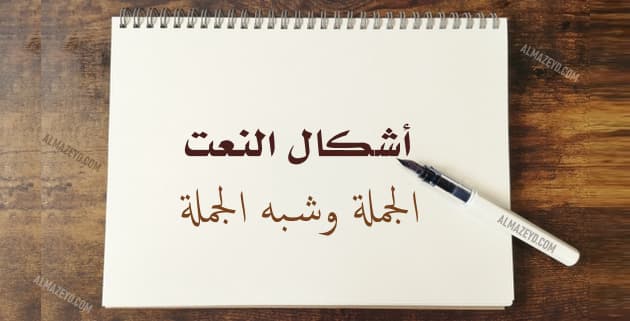 أشكال النعت
الجملة وشبه الجملة
ALMAZEYD.COM
ALMAZEYD.COM
ALMAZEYD.COM
ALMAZEYD.COM